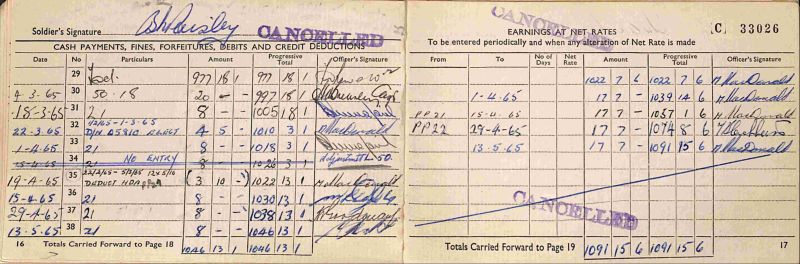 Soldier's Signature
CANCELLED
CASH PAYMENTS, FINES, FORFEITURES, DEBITS AND CREDIT DEDUCTIONS
Date No Particulars Amount Progressive Total Officer's Signature
29 977 18 1 977 18 1
4-3-65 30 50.18 20 - - 997 18 1
18-3-65 31 21 8 - - 1005 18 1
22-3-65 32 4 5 - 1010 3 1 MacDonald
1-4-65 33 21 8 - - 1018 3 1
15-4-65 34 21 NO ENTRY 8 - - 1026 3 1
19-4-65 35 DEDUCT (3 10 -) 1022 13 1 MacDonald
15-4-65 36 21 8 - - 1030 13 1
29-4-65 37 21 8 - - 1038 13 1
13.5.65 38 21 8 - - 1046 13 1
16 Totals Carried Forward to Page 18 1046 13 1 1046 13 1
CANCELLED
EARNINGS AT NET RATES (C) 33026
To be entered periodically and when any alteration of Net Rate is made
From To No of Days Net Rate Amount Progressive Total Officer's Signature
1022 7 6 1022 7 6 MacDonald
1-4-65 17 7 - 1039 14 6 MacDonald
PP21 15-4-65 17 7 - 1057 1 6 MacDonald
PP22 29-4-65 17 7 - 1074 8 6
13.5.65 17 7 - 1091 15 6 MacDonald
CANCELLED
Totals Carried Forward to Page 19 1091 15 6 1091 15 6 17